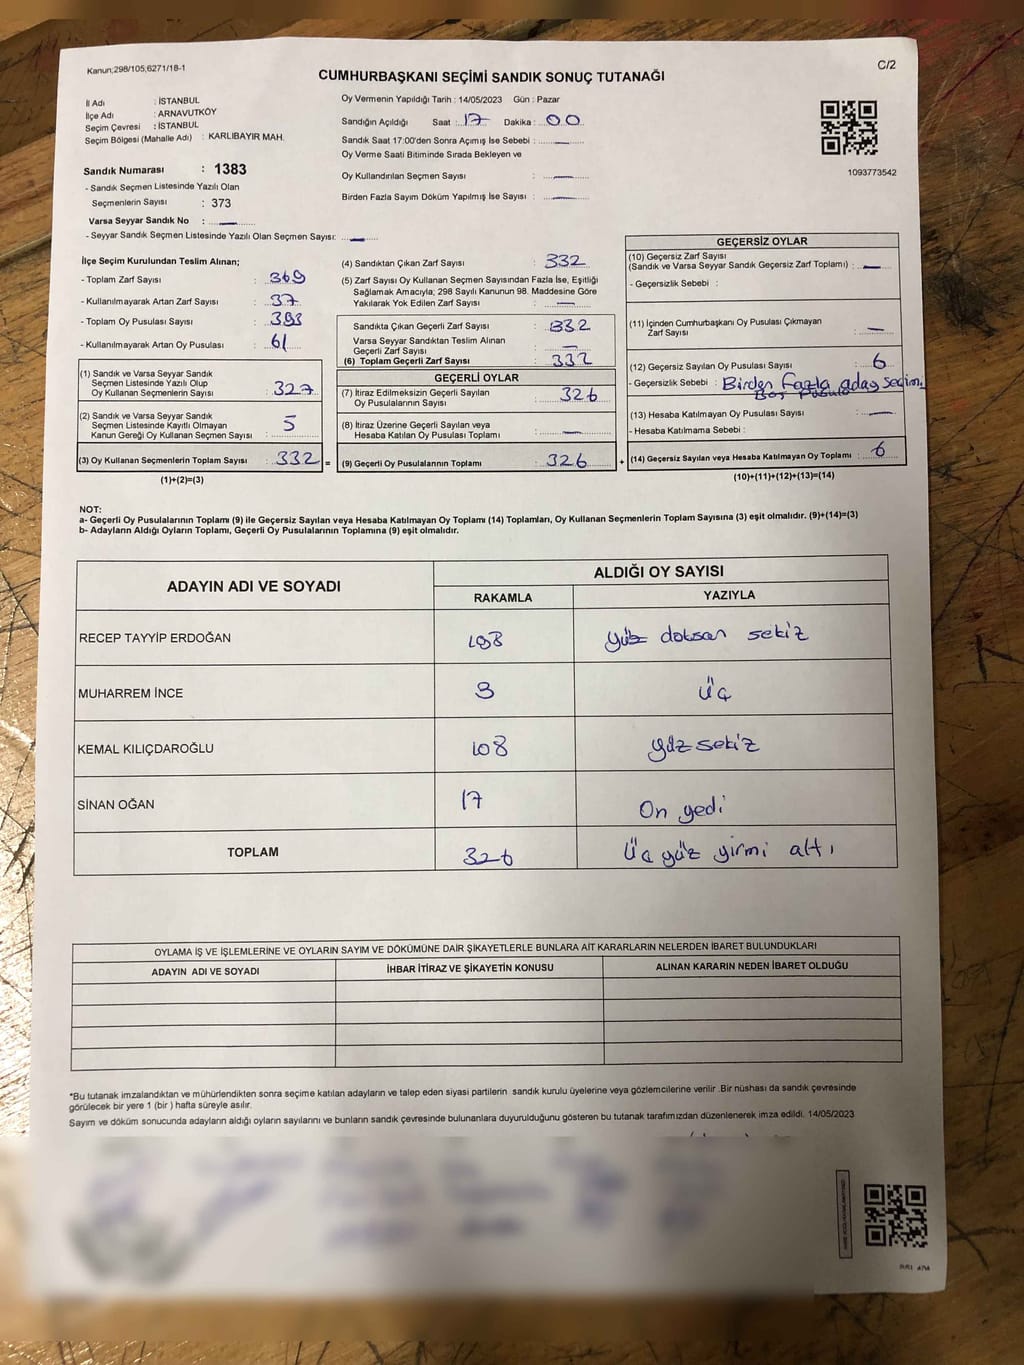 Kanun;298/105,6271/18-1
C/2
CUMHURBAŞKANI SEÇİMİ SANDIK SONUÇ TUTANAĞI
İl Adı : İSTANBUL
İlçe Adı : ARNAVUTKÖY
Seçim Çevresi : İSTANBUL
Seçim Bölgesi (Mahalle Adı) : KARLIBAYIR MAH.
Sandık Numarası : 1383
- Sandık Seçmen Listesinde Yazılı Olan
Seçmenlerin Sayısı : 373
Varsa Seyyar Sandık No : —
- Seyyar Sandık Seçmen Listesinde Yazılı Olan Seçmen Sayısı: —
Oy Vermenin Yapıldığı Tarih : 14/05/2023 Gün : Pazar
Sandığın Açıldığı Saat : 17 Dakika : 00
Sandık Saat 17:00'den Sonra Açımış İse Sebebi : —
Oy Verme Saati Bitiminde Sırada Bekleyen ve
Oy Kullandırılan Seçmen Sayısı : —
Birden Fazla Sayım Döküm Yapılmış İse Sayısı : —
1093773542
İlçe Seçim Kurulundan Teslim Alınan;
- Toplam Zarf Sayısı : 369
- Kullanılmayarak Artan Zarf Sayısı : 37
- Toplam Oy Pusulası Sayısı : 393
- Kullanılmayarak Artan Oy Pusulası : 61
(1) Sandık ve Varsa Seyyar Sandık
Seçmen Listesinde Yazılı Olup
Oy Kullanan Seçmenlerin Sayısı : 327
(2) Sandık ve Varsa Seyyar Sandık
Seçmen Listesinde Kayıtlı Olmayan
Kanun Gereği Oy Kullanan Seçmen Sayısı : 5
(3) Oy Kullanan Seçmenlerin Toplam Sayısı : 332 =
(1)+(2)=(3)
(4) Sandıktan Çıkan Zarf Sayısı : 332
(5) Zarf Sayısı Oy Kullanan Seçmen Sayısından Fazla İse, Eşitliği
Sağlamak Amacıyla, 298 Sayılı Kanunun 98. Maddesine Göre
Yakılarak Yok Edilen Zarf Sayısı : —
Sandıkta Çıkan Geçerli Zarf Sayısı : 332
Varsa Seyyar Sandıktan Teslim Alınan
Geçerli Zarf Sayısı : —
(6) Toplam Geçerli Zarf Sayısı : 332
GEÇERLİ OYLAR
(7) İtiraz Edilmeksizin Geçerli Sayılan
Oy Pusulalarının Sayısı : 326
(8) İtiraz Üzerine Geçerli Sayılan ve
Hesaba Katılan Oy Pusulası Toplamı : —
(9) Geçerli Oy Pusulalarının Toplamı : 326 +
GEÇERSİZ OYLAR
(10) Geçersiz Zarf Sayısı
(Sandık ve Varsa Seyyar Sandık Geçersiz Zarf Toplamı) : —
- Geçersizlik Sebebi :
(11) İçinden Cumhurbaşkanı Oy Pusulası Çıkmayan
Zarf Sayısı : —
(12) Geçersiz Sayılan Oy Pusulası Sayısı : 6
- Geçersizlik Sebebi : Birden fazla aday seçim.
Boş pusula
(13) Hesaba Katılmayan Oy Pusulası Sayısı : —
- Hesaba Katılmama Sebebi :
(14) Geçersiz Sayılan veya Hesaba Katılmayan Oy Toplamı : 6
(10)+(11)+(12)+(13)=(14)
NOT:
a- Geçerli Oy Pusulalarının Toplamı (9) ile Geçersiz Sayılan veya Hesaba Katılmayan Oy Toplamı (14) Toplamları, Oy Kullanan Seçmenlerin Toplam Sayısına (3) eşit olmalıdır. (9)+(14)=(3)
b- Adayların Aldığı Oyların Toplamı, Geçerli Oy Pusulalarının Toplamına (9) eşit olmalıdır.
ADAYIN ADI VE SOYADI ALDIĞI OY SAYISI
RAKAMLA YAZIYLA
RECEP TAYYİP ERDOĞAN 198 yüz doksan sekiz
MUHARREM İNCE 3 üç
KEMAL KILIÇDAROĞLU 108 yüz sekiz
SİNAN OĞAN 17 On yedi
TOPLAM 326 üç yüz yirmi altı
OYLAMA İŞ VE İŞLEMLERİNE VE OYLARIN SAYIM VE DÖKÜMÜNE DAİR ŞİKAYETLERLE BUNLARA AİT KARARLARIN NELERDEN İBARET BULUNDUKLARI
ADAYIN ADI VE SOYADI İHBAR İTİRAZ VE ŞİKAYETİN KONUSU ALINAN KARARIN NEDEN İBARET OLDUĞU
*Bu tutanak imzalandıktan ve mühürlendikten sonra seçime katılan adayların ve talep eden siyasi partilerin sandık kurulu üyelerine veya gözlemcilerine verilir .Bir nüshası da sandık çevresinde
görülecek bir yere 1 (bir ) hafta süreyle asılır.
Sayım ve döküm sonucunda adayların aldığı oyların sayılarını ve bunların sandık çevresinde bulunanlara duyurulduğunu gösteren bu tutanak tarafımızdan düzenlenerek imza edildi. 14/05/2023